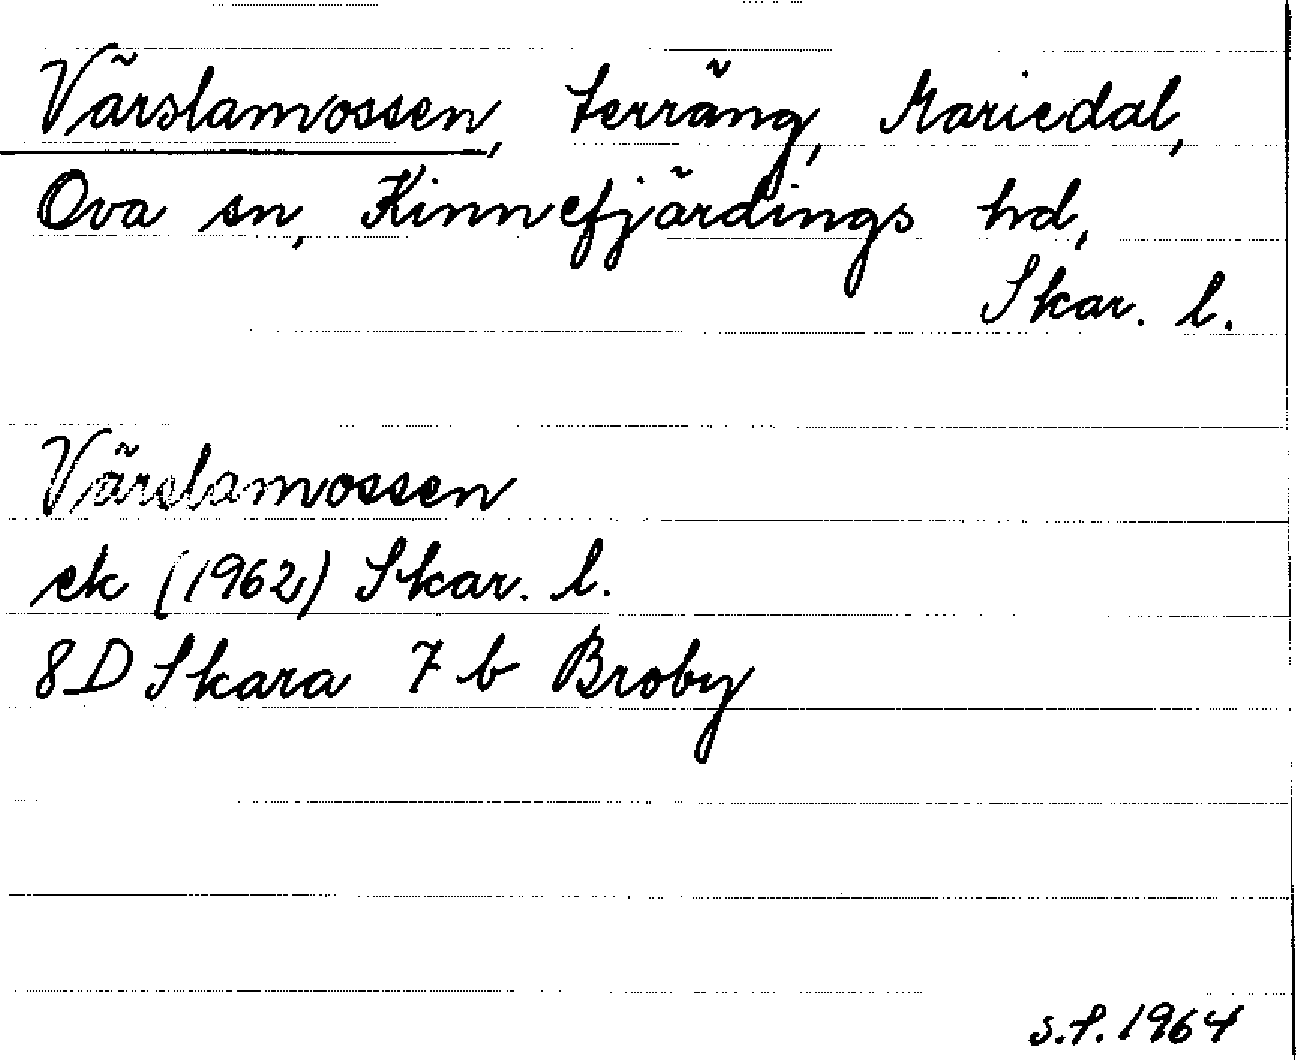 Värslamossen, terräng, Mariedal,
Ova sn, Kinnefjärdings hd,
Skar. l.
Värslamossen
ek (1962) Skar. l.
8D Skara 7 b Broby
s.f. 1964